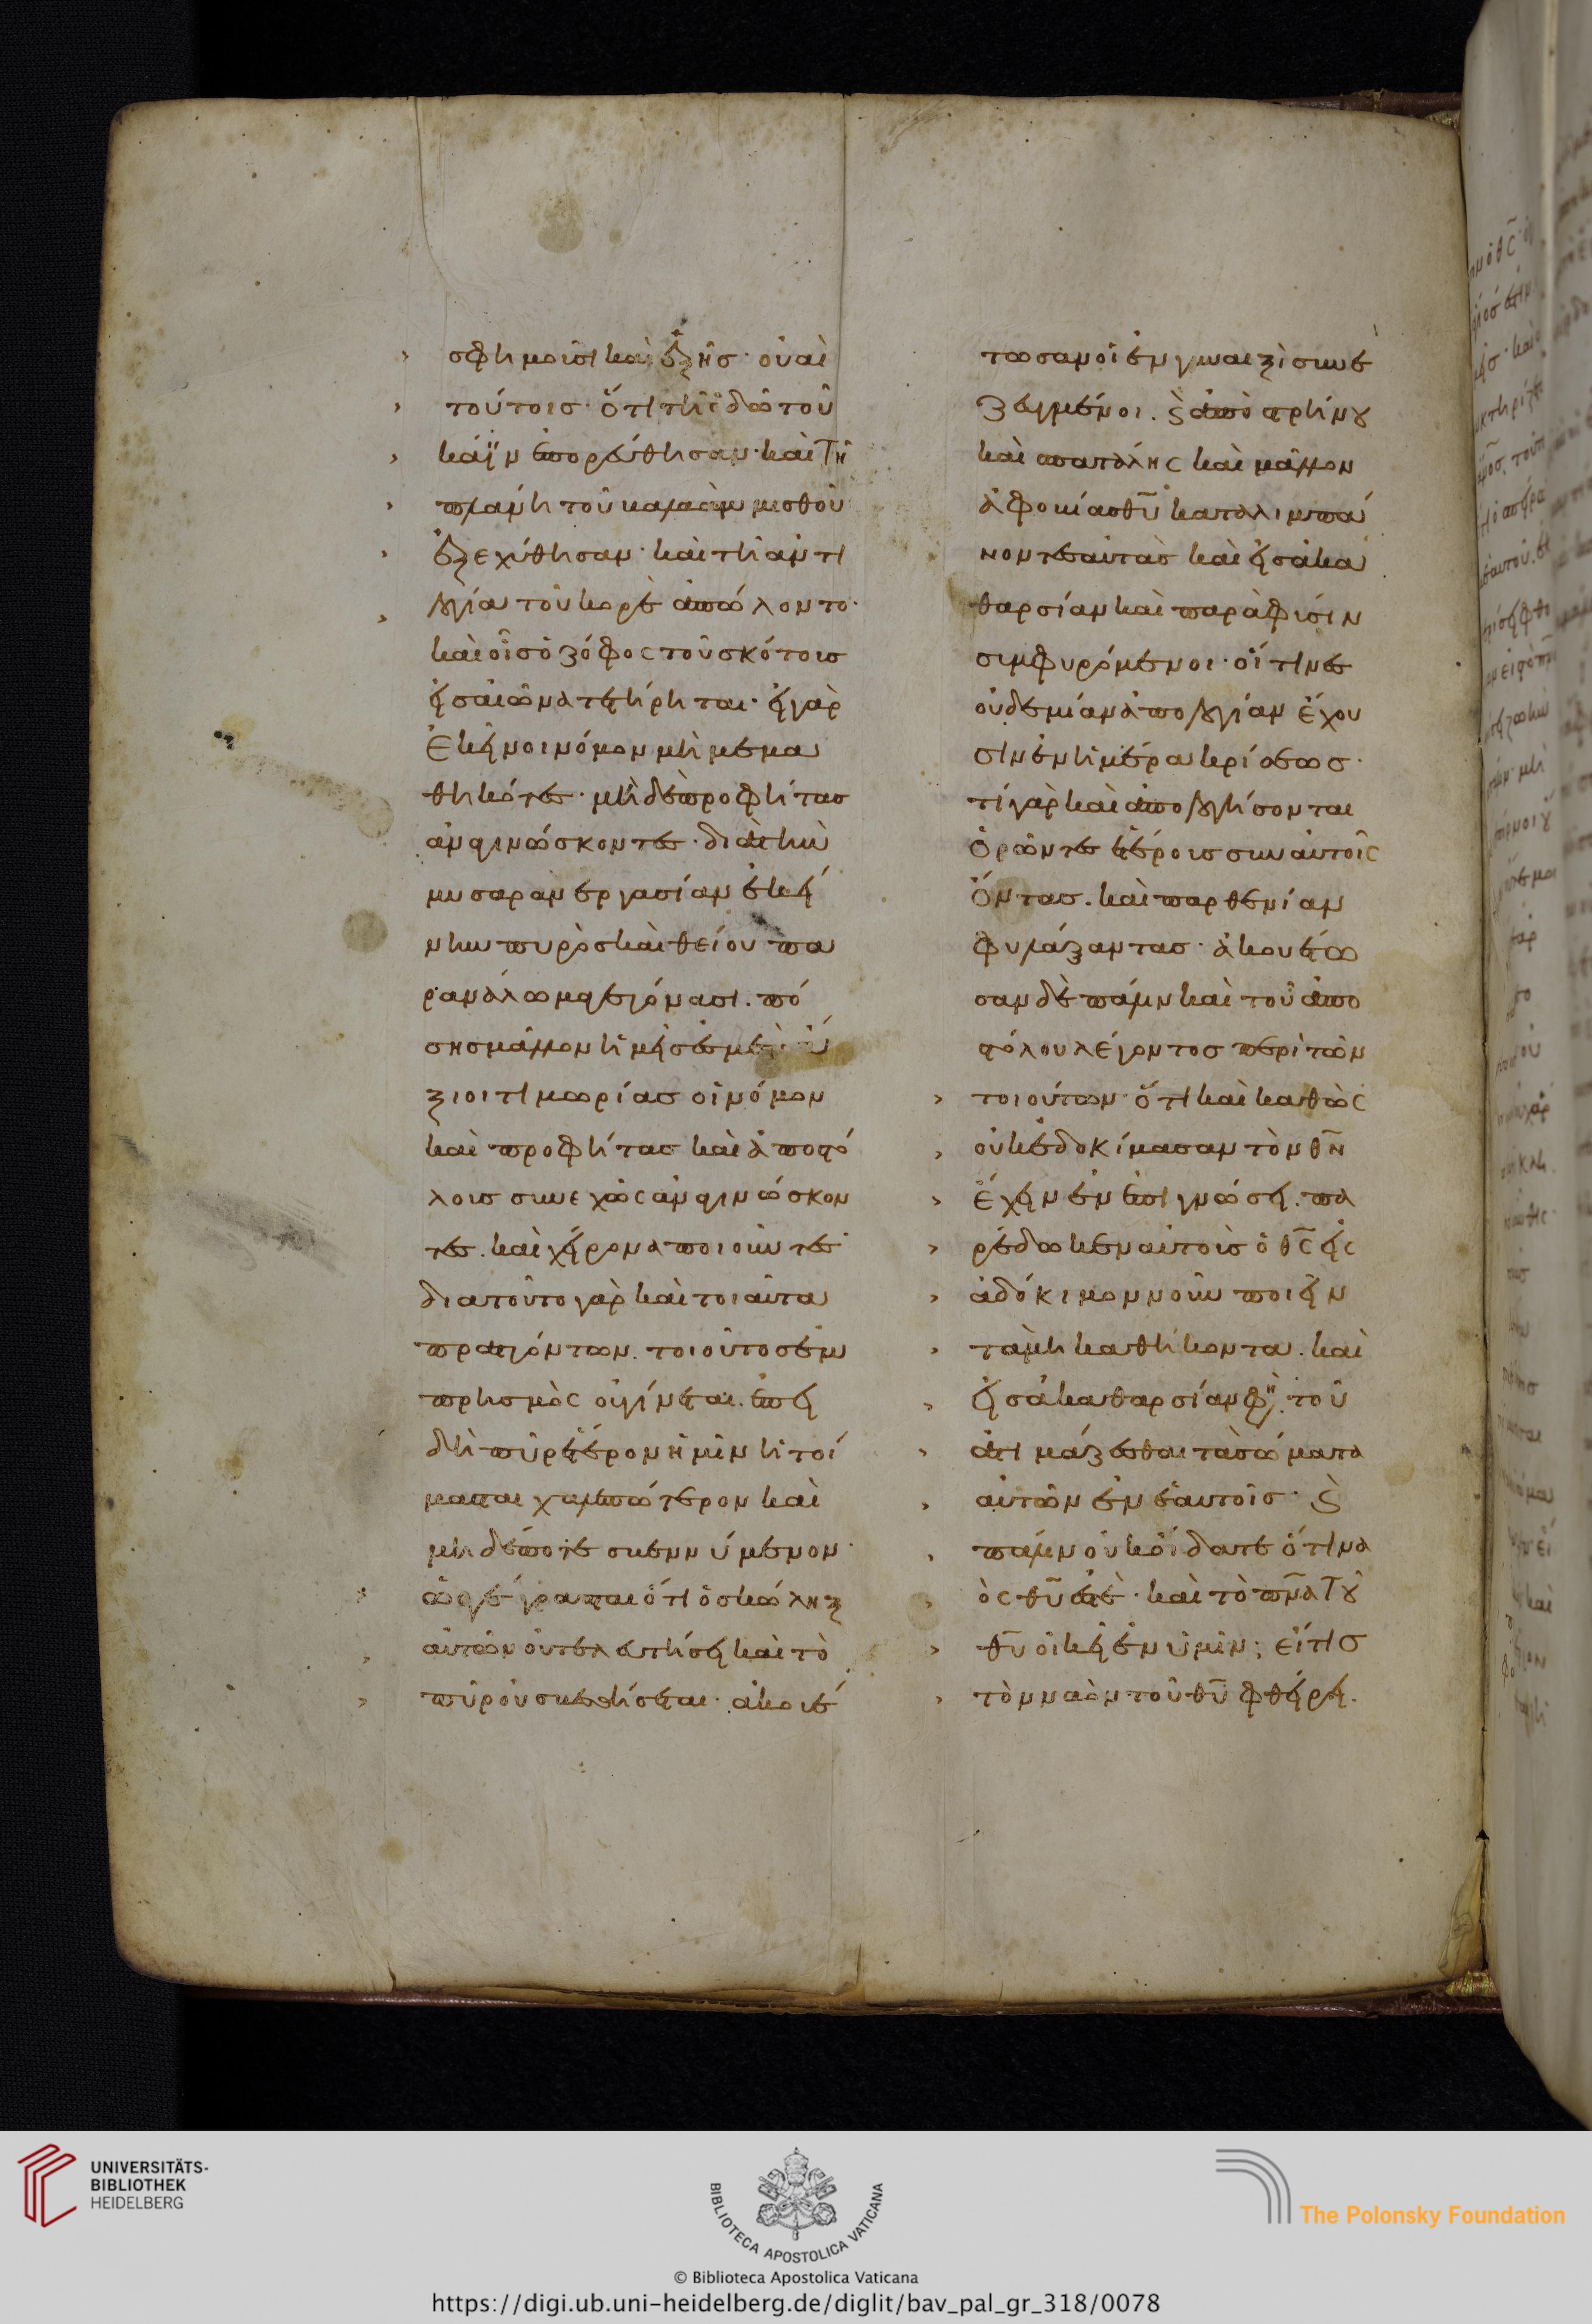 σφημοῖσι καὶ ἑξῆσ· οὐαὶ
τούτοισ· ὅτι τῆ ὁδῶ τοῦ
κάϊν ἐπορεύθησαν· καὶ τῆ
πλάνη τοῦ βαλαὰμ μισθοῦ
ἐξεχύθησαν· καὶ τῆ ἀντι
λογία τοῦ κορὲ ἀπώλοντο·
καὶ οἷσ ὁ ζόφος τοῦ σκότοισ
εἰσ αἰῶνα τετήρηται· εἰ γὰρ
ἐκεῖνοι νόμον μὴ μεμα
θηκότεσ· μὴ δὲ προφήτασ
ἀναγινώσκοντεσ· διὰ τὴν
μυσαρὰν ἐργασίαν ἐκεί
νην πυρὸσ καὶ θείου πα
ρανάλωμα γεγόνασι. πό
σησ μᾶλλον ἡμεῖσ ἐσμὲν ἄ
ξιοι τιμωρίασ οἱ νόμον
καὶ προφήτας καὶ ἀποστό
λοισ συνεχῶς ἀναγινώσκον
τεσ. καὶ χείρονα ποιοῦντεσ·
διατοῦτο γὰρ καὶ τοιαῦτα
πραττόντων. τοιοῦτοσ ἐμ
πρησμὸς οὐ γίνεται. ἐπεὶ
δὴ πῦρ ἕτερον ἡμῖν ἡτοί
μασται χαλεπώτερον καὶ
μὴ δέποτε σβεννύμενον·
ὡσ γέγραπται ὅτι ὁ σκώληξ
αὐτῶν οὐ τελευτήσει καὶ τὸ
πῦρ οὐ σβεσθήσεται· ἀκουέ
τωσαν οἱ ἐν γυναιξὶ συνε
ζευγμένοι. καὶ ἀπὸ στρήνου
καὶ σπατάλης καὶ μᾶλλον
ἀφοβίασ θυ καταλιμπά
νοντεσ αὐτὰσ καὶ εἰσ ἀκα
θαρσίαν καὶ παρὰ φύσιν
συμφυρόμενοι· οἵτινεσ
οὐδεμίαν ἀπολογίαν ἔχου
σιν ἐν ἡμέρα κρίσεωσ·
τί γὰρ καὶ ἀπολογήσονται
ὁρῶντεσ ἑτέροισ συν αὐτοῖς
ὄντασ. καὶ παρθενίαν
φυλάξαντασ· ἀκουέτω
σαν δὲ πάλιν καὶ τοῦ ἀπο
στόλου λέγοντοσ περὶ τῶν
τοιούτων· ὅτι καὶ καθὼς
οὐκ ἐδοκίμασαν τὸν θν
ἔχειν ἐν ἐπιγνώσει. πα
ρέδωκεν αὐτοὶσ ὁ θς εἰς
ἀδόκιμον νοῦν ποιεῖν
τὰ μὴ καθήκοντα. καὶ
εἰσ ἀκαθαρσίαν φη. τοῦ
ἀτιμάζεσθαι τὰ σώματα
αὐτῶν ἐν ἑαυτοῖσ· καὶ
πάλιν οὐκ οἴδατε ὅτι να
ὸς θυ ἐστὲ· καὶ τὸ πνα τοῦ
θυ οἰκεῖ ἐν ὑμῖν; εἴτισ
τὸν ναὸν τοῦ θυ φθείρει.
UNIVERSITÄTS-
BIBLIOTHEK
HEIDELBERG
BIBLIOTECA APOSTOLICA VATICANA
The Polonsky Foundation
© Biblioteca Apostolica Vaticana
https://digi.ub.uni-heidelberg.de/diglit/bav_pal_gr_318/0078